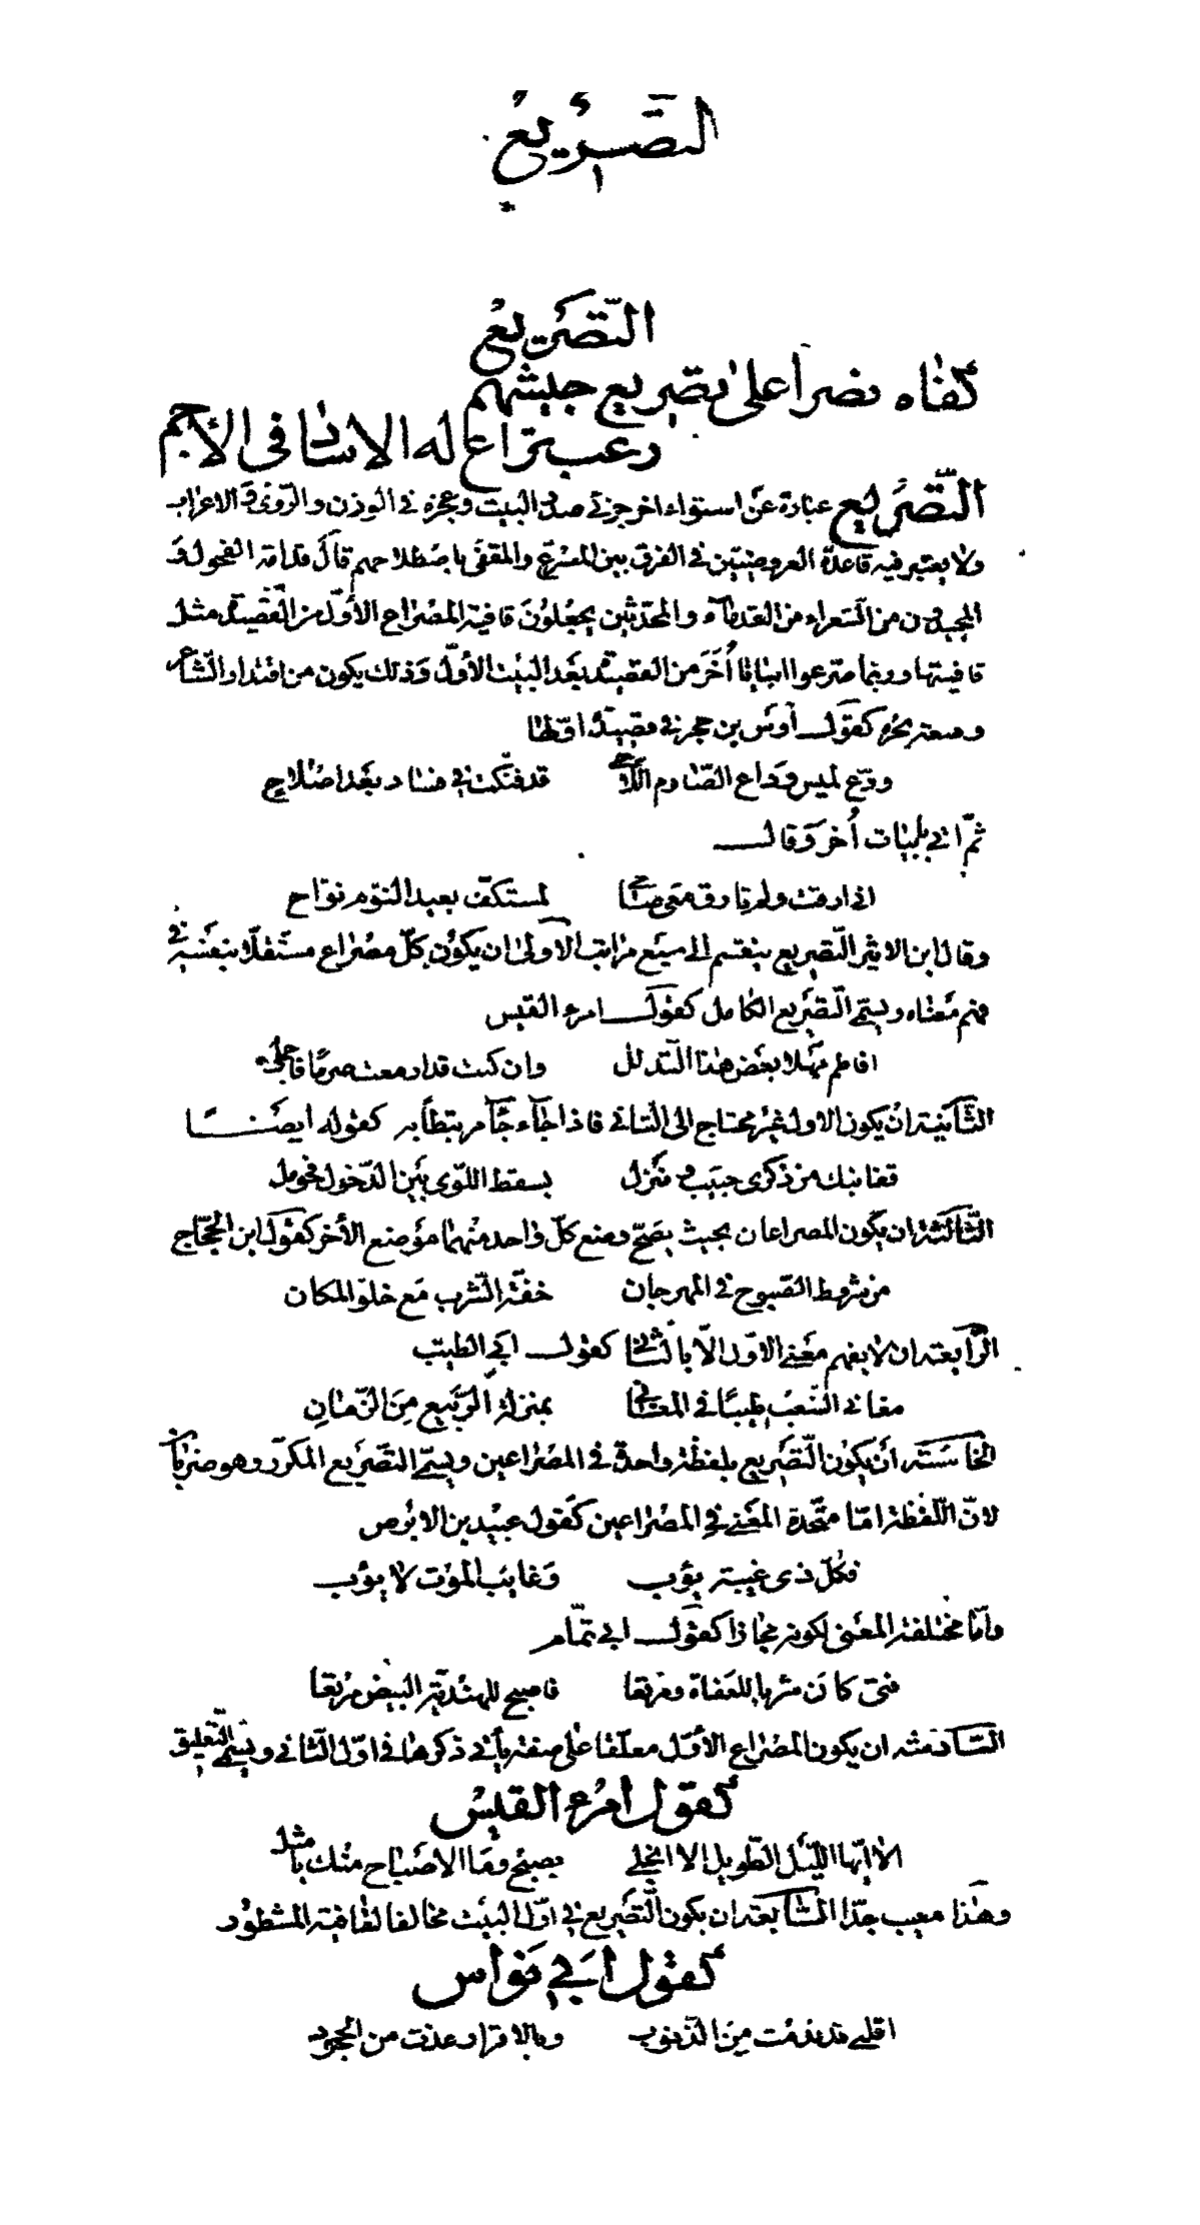 التصريع
التصريع
كفاه نصرا على تصريع جيشهم
رعب تراع له الاساد في الأجم
التصريع عبارة عن استواء اخر جزء في صدر البيت وعجزه في الوزن والروى والاعراب
ولا يعتبر فيه قاعدة العروضيين في الفرق بين المصرع والمقفى باصطلاحهم قال قدامة الفحول و
المجيدون من الشعراء من القدماء والمحدثين يجعلون قافية المصراع الأول من القصيدة مثل
قافيتها وربما صرعوا ابياتا أخر من القصيدة بعد البيت الأول وذلك يكون من اقتدار الشاعر
وسعة بحره كقول أوس بن حجر في قصيدة اولها
ودع لميس وداع الصارم اللاحي قد فنكت في فساد بعد اصلاح
ثم اتى بابيات أخر وقال
اني ارقت ولم تارق معي صاحي لمستكف بعيد النوم نواح
وقال ابن الاثير التصريع ينقسم الى سبع مراتب الاولى ان يكون كل مصراع مستقلا بنفسه في
فهم معناه ويسمى التصريع الكامل كقول امرء القيس
افاطم مهلا بعض هذا التدلل وان كنت قد ازمعت صرمًا فاجملي
الثانية ان يكون الاول غير محتاج الى الثاني فاذا جاء جاء مرتبطًا به كقوله ايضًا
قفا نبك من ذكرى حبيب ومنزل بسقط اللوى بين الدخول فحومل
الثالثة ان يكون المصراعان بحيث يصح وضع كل واحد منهما موضع الأخر كقول ابن الحجاج
من شروط الصبوح في المهرجان خفة الشرب مع خلو المكان
الرابعة ان لا يفهم معنى الاول الا بالثاني كقول ابي الطيب
مغاني الشعب طيبًا في المغاني بمنزلة الربيع من الزمان
الخامسة أن يكون التصريع بلفظة واحدة في المصراعين ويسمى التصريع المكرر وهو ضربان
لان اللفظة اما متحدة المعنى في المصراعين كقول عبيد بن الابرص
فكل ذى غيبة يؤب وغايب الموت لا يؤب
وامّا مختلفة المعنى لكونه مجازا كقول ابي تمّام
فتى كان شربا للعفاة ومرتعا فاصبح للهندية البيض مرتعا
السادسة ان يكون المصراع الأول معلقا على صفة يأتي ذكرها في اول الثاني ويسمى التعليق
كقول امرء القيس
الا ايها الليل الطويل الا انجلي بصبح وما الاصباح منك بامثل
وهذا معيب جدّا السابعة ان يكون التصريع في اول البيت مخالفا لقافية المشطور
كقول ابي نواس
اقلني قد ندمت من الذنوب وبالاقرار عذت من الجحود